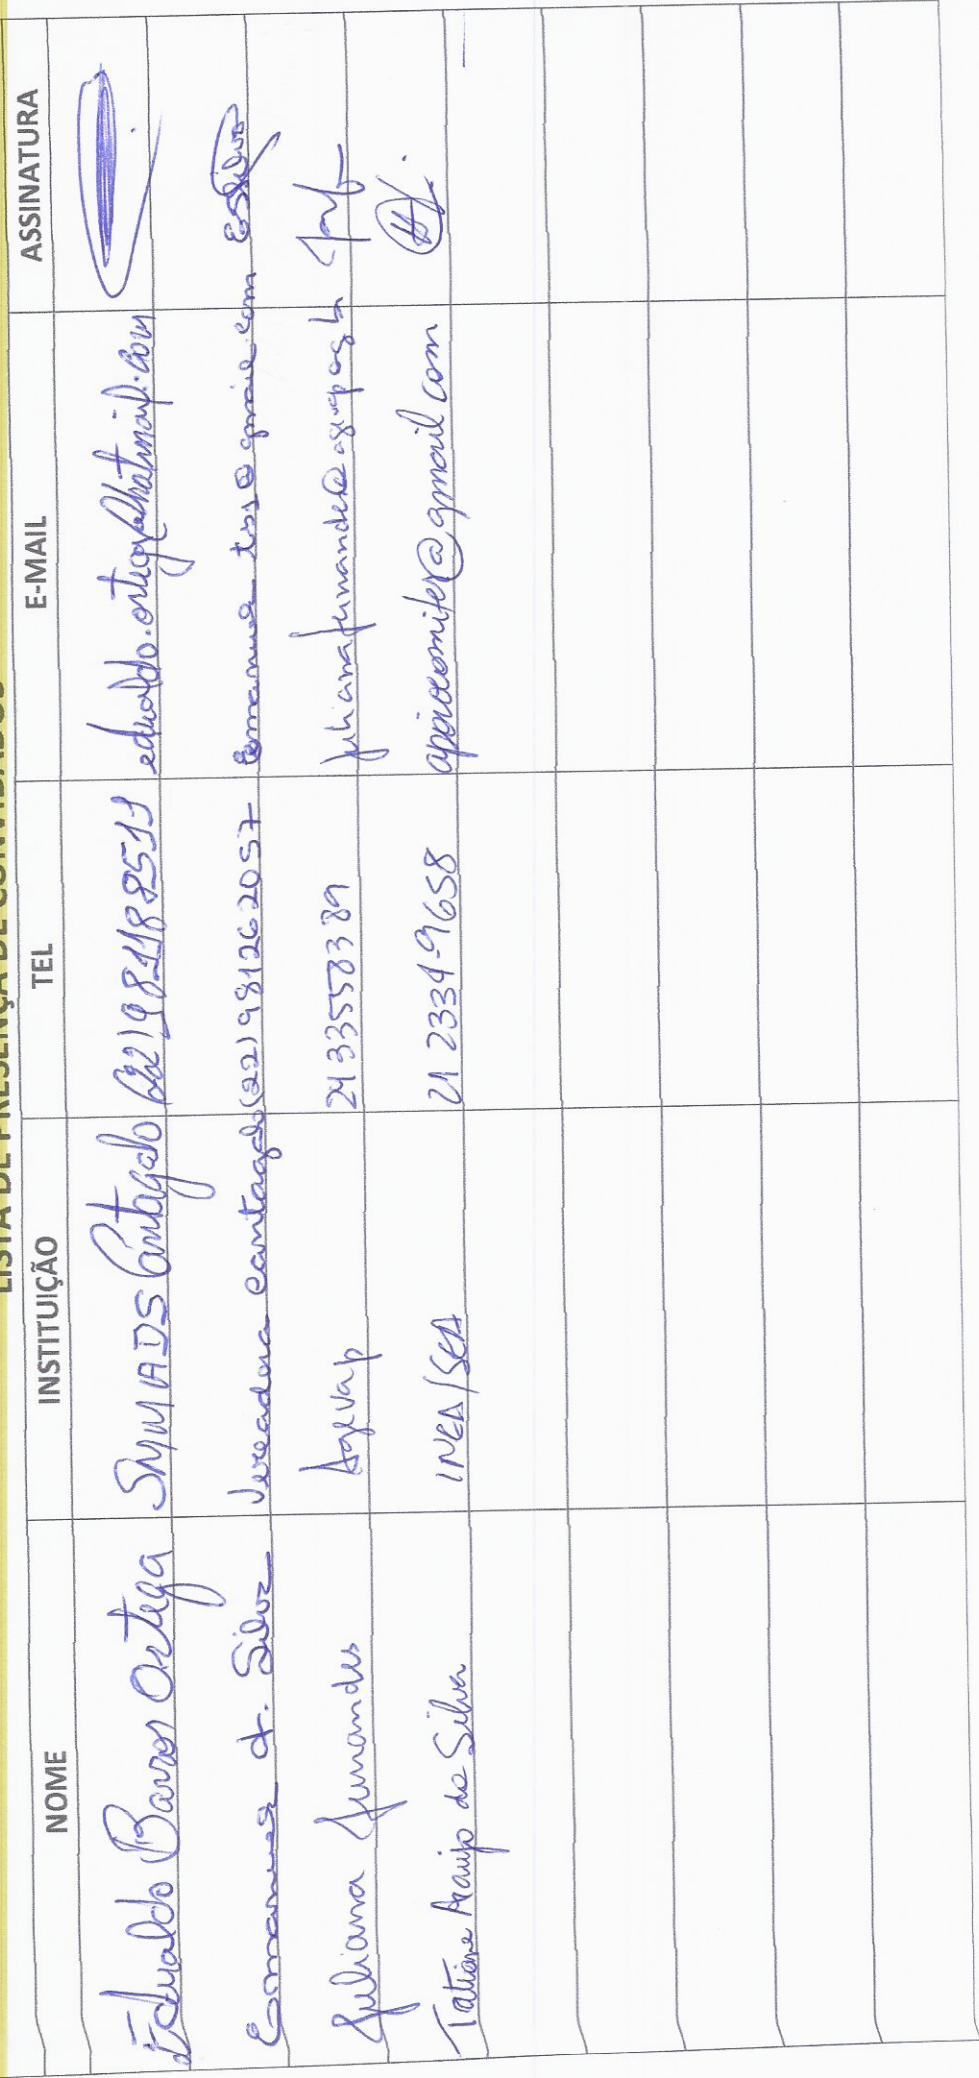 LISTA DE PRESENÇA DE CONVIDADOS
NOME INSTITUIÇÃO TEL E-MAIL ASSINATURA
Edualdo Barros Ortega SMMADS Cantagalo (22) 981188511 edualdo.ortega@hotmail.com
Emanuela A. Silva Vereadora Cantagalo (22) 981262057 @gmail.com ESilva
Juliana Fernandes Agevap 24 33558389
Tatiane Araujo da Silva INEA/SEA 21 2334-9658 @gmail.com